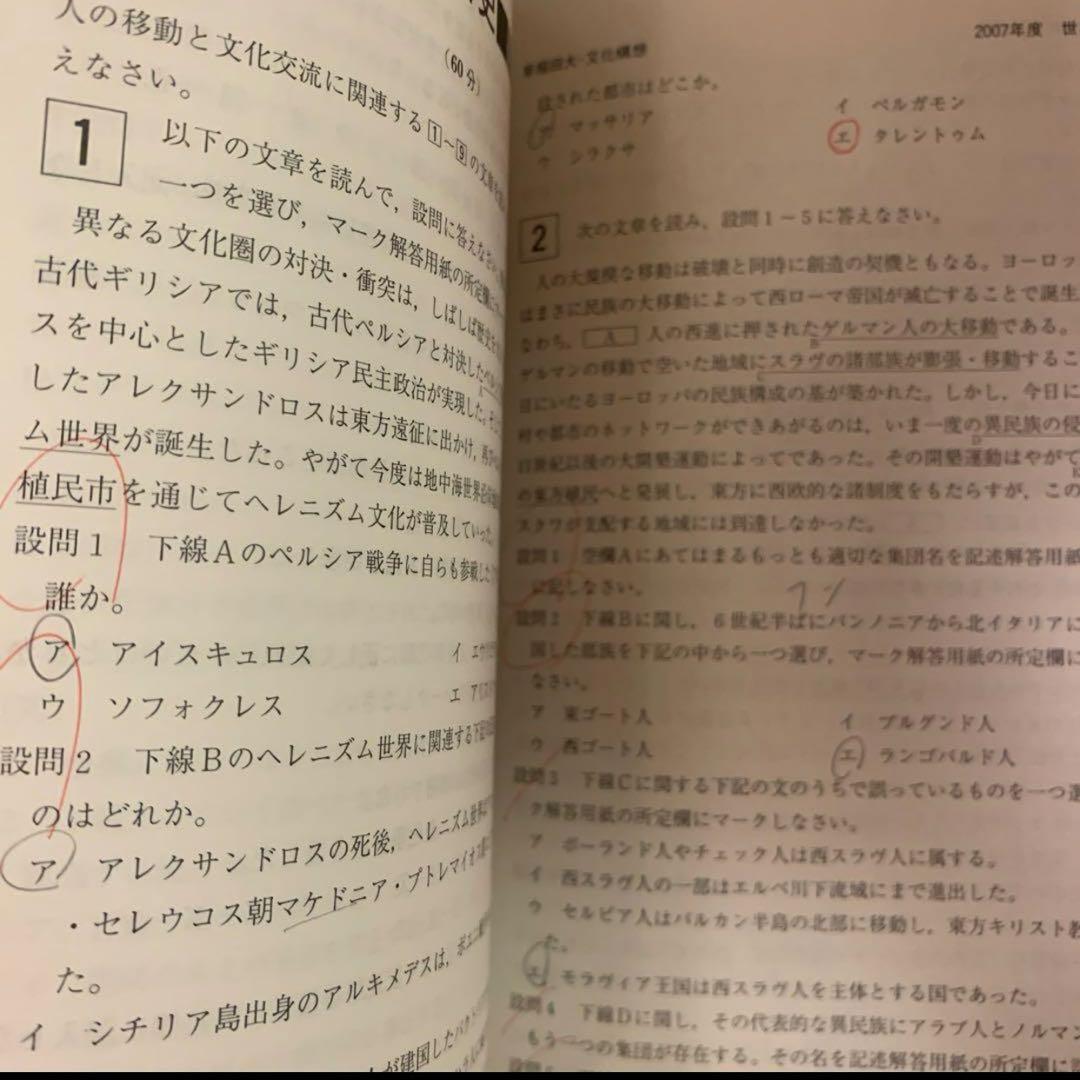 史
(60分)
人の移動と文化交流に関連する1~9の文章
えなさい。
1
以下の文章を読んで,設問に答えなさい
一つを選び,マーク解答用紙の所定欄に
異なる文化圏の対決・衝突は,しばしば歴史を
古代ギリシアでは,古代ペルシアと対決した
スを中心としたギリシア民主政治が実現した。
したアレクサンドロスは東方遠征に出かけ,
ム世界が誕生した。やがて今度は地中海世界
植民市を通じてヘレニズム文化が普及していった。
設問1 下線Aのペルシア戦争に自らも参戦した
誰か。
ア アイスキュロス
イ
ウ ソフォクレス
エ
設問2 下線Bのヘレニズム世界に関連する下記の
のはどれか。
ア アレクサンドロスの死後,ヘレニズム世界は
・セレウコス朝マケドニア・プトレマイオス
た。
イ シチリア島出身のアルキメデスは,ポエニ戦
が建国した
2007年度 世
早稲田大-文化構想
設された都市はどこか。
ア マッサリア
イ ペルガモン
ウ シラクサ
エ タレントゥム
2
次の文章を読み,設問1~5に答えなさい。
人の大規模な移動は破壊と同時に創造の契機ともなる。ヨーロッ
はまさに民族の大移動によって西ローマ帝国が滅亡することで誕生
なわち, A 人の西進に押されたゲルマン人の大移動である。
B
ゲルマンの移動で空いた地域にスラヴの諸部族が膨張・移動するこ
C
日にいたるヨーロッパの民族構成の基が築かれた。しかし,今日に
村や都市のネットワークができあがるのは,いま一度の異民族の侵
D
世紀以後の大開墾運動によってであった。その開墾運動はやがて
E
の東方植民へと発展し,東方に西欧的な諸制度をもたらすが,この
スクワが支配する地域には到達しなかった。
設問1 空欄Aにあてはまるもっとも適切な集団名を記述解答用紙
に記しなさい。
フン
設問2 下線Bに関し,6世紀半ばにパンノニアから北イタリアに
国した部族を下記の中から一つ選び,マーク解答用紙の所定欄に
なさい。
ア 東ゴート人
イ ブルグンド人
ウ 西ゴート人
エ ランゴバルド人
設問3 下線Cに関する下記の文のうちで誤っているものを一つ選
ク解答用紙の所定欄にマークしなさい。
ア ポーランド人やチェック人は西スラヴ人に属する。
イ 西スラヴ人の一部はエルベ川下流域にまで進出した。
ウ セルビア人はバルカン半島の北部に移動し,東方キリスト教
た。
エ モラヴィア王国は西スラヴ人を主体とする国であった。
設問4 下線Dに関し,その代表的な異民族にアラブ人とノルマン
もう一つの集団が存在する。その名を記述解答用紙の所定欄に